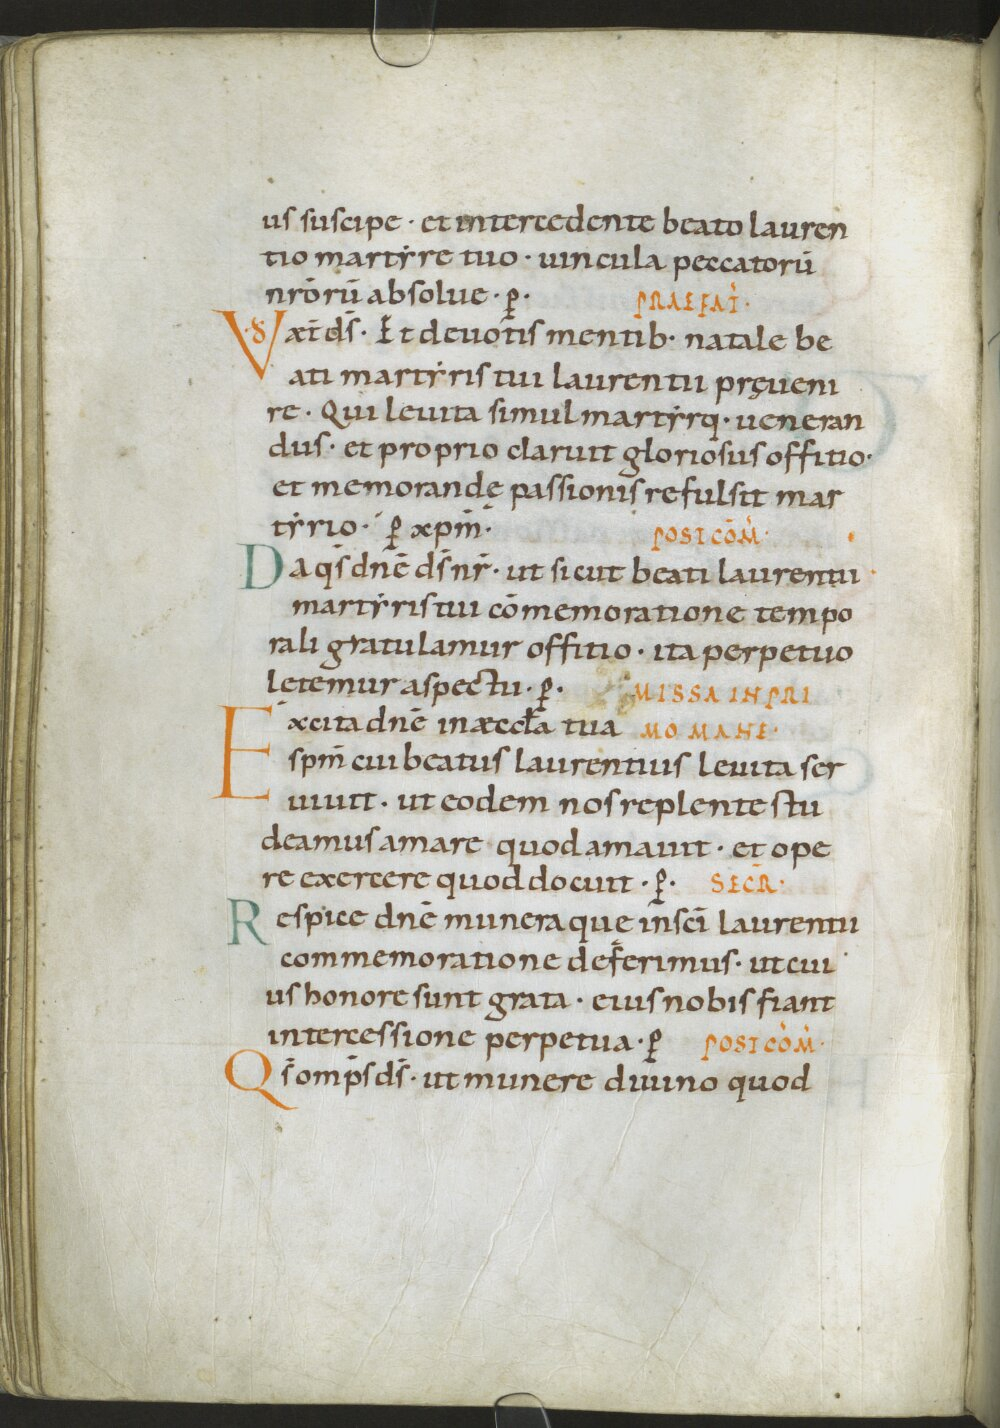 us suscipe · et intercedente beato lauren
tio martẏre tuo · uincula peccatorū
nr̄orū absolue · ꝑ · PRAEFAT̄ ·
VD xt̄ d̄s · Et deuotis mentib · natale be
ati martẏris tui laurentii pręueni
re · Qui leuita simul martẏrq · ueneran
dus · et proprio claruit gloriosus offitio ·
et memorandę passionis refulsit mar
tẏrio · ꝑ xp̄m · POSTCŌM ·
Da q̄s dn̄e d̄s nr̄ · ut sicut beati laurentii
martẏris tui cōmemoratione tempo
rali gratulamur offitio · ita perpetuo
lętemur aspectu · ꝑ · MISSA IN PRI
Excita dn̄e in æccl̄a tua MO MANE ·
sp̄m cui beatus laurentius leuita ser
uiuit · ut eodem nos replente stu
deamus amare quod amauit · et ope
re exercere quod docuit · ꝑ · SECR̄ ·
Respice dn̄e munera que in sc̄i laurentii
commemoratione deferimus · ut cui
us honore sunt grata · eius nobis fiant
intercessione perpetua · ꝑ POSTCŌM ·
Q̄s omp̄s d̄s · ut munere diuino quod